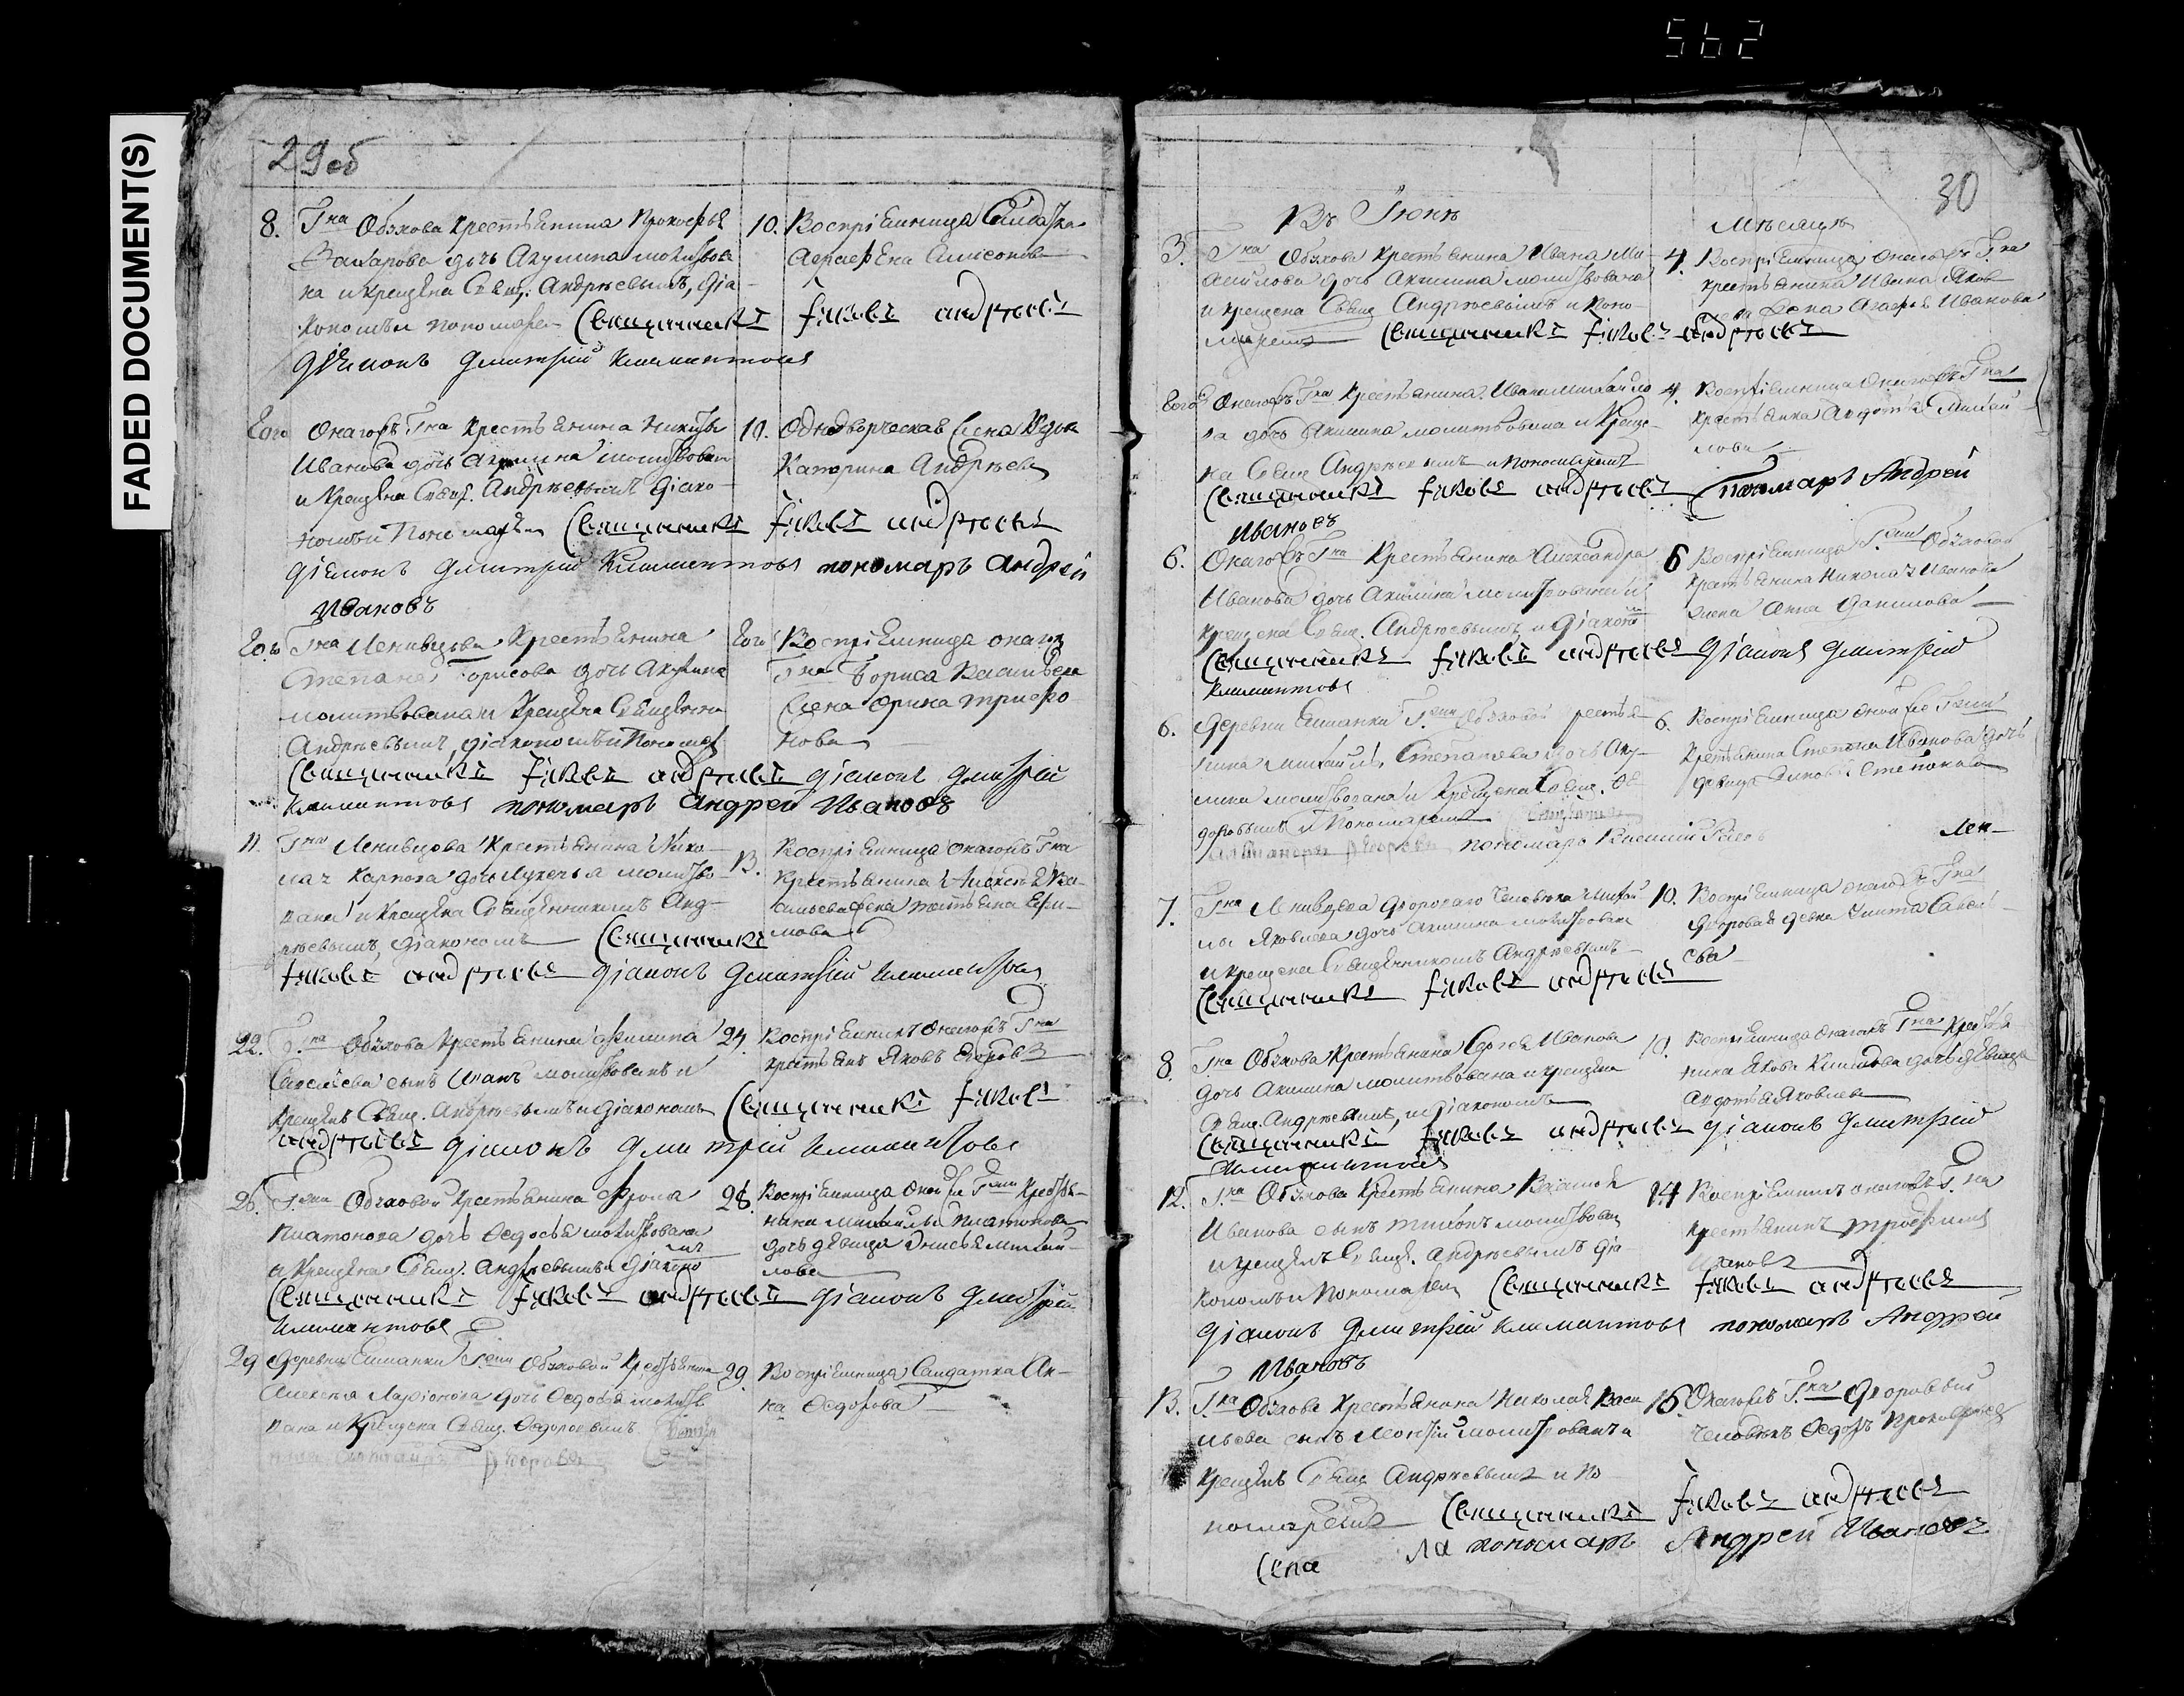 562
FADED DOCUMENT(S)
29 об
8. Гна Обухова крестьянина Прокофья
Захарова дочь Акулина молитвова
на и крещена Свящ: Андреевымъ, дiа-
кономъ и пономаремъ Священникъ Iаковъ Андреевъ
дiяконъ Дмитрiй Климентовъ
10. Воспрiемница Солдатка
Аграфена
Того Онагожъ Гна крестьянина Никиты
Иванова дочь Акулина молитвована
и крещена Свящ. Андреевымъ дiако-
номъ и пономаремъ Священникъ Iаковъ Андреевъ
дiяконъ Дмитрий Климентовъ пономарь Андрей
Ивановъ
10. Однодворческая жена вдова
Катерина Андреева
Того Гна Ленивцова крестьянина
Степана Борисова дочь Акулина
молитвована и крещена Священни
Андреевымъ, дiакономъ и пономар
Священникъ Iаковъ Андреевъ дiаконъ Дмитрiй
Климентовъ пономарь Андрей Ивановъ
Того Воспрiемница онагожъ
Гна Бориса Васильева
жена Орина Трифо
нова
11. Гна Ленивцова крестьянина Нико-
лая Карпова дочь Лукерья молитво-
вана и крещена Священникомъ Анд-
реевымъ, дiакономъ Священникъ
Iаковъ Андреевъ дiаконъ Дмитрiй Климентовъ
13. Воспрiемница онагожъ Гна
крестьянина Алексея Ва-
сильева жена Татьяна Ефи-
мова
22. Гна Обухова крестьянина Филипа
сынъ Иванъ молитвованъ и
крещенъ Свящ. Андреевымъ и дiакономъ Священникъ Iаковъ
Андреевъ дiаконъ Дмитрiй Климентовъ
24. Воспрiемникъ онагожъ Гна
крестьянъ Яковъ Егоровъ
26. Гжи Обуховой крестьянина Фрола
Платонова дочь Федосья молитвована
и крещена Свящ. Андреевымъ и дiаконо
мъ
Священникъ Iаковъ Андреевъ дiаконъ Дмитрiй
Климентовъ
28. Воспрiемница оной же Гжи крестья-
нина Михайлы Платонова
дочь девица Анисья Михай-
лова
29 Деревни Гжи Обуховой крестьянина
Алексея Ларионова дочь Федосья молитв
вана и крещена Свящ. Федоровымъ
29. Воспрiемница Солдатка Ан-
на Федорова
30
Въ Iюне
Месяце
3. Гна Обухова крестьянина Ивана Ми
хайлова дочь Акилина молитвована
и крещена Свящ Андреевымъ и поно-
маремъ Священникъ Iаковъ Андреевъ
4. Воспрiемница онагожъ Гна
крестьянина Ивана Яков
жена Агафья Иванова
Того Онагожъ Гна крестьянина Ивана Михайло
ва дочь Акилина молитвована и креще-
на Свящ Андреевымъ и пономаремъ
Священникъ Iаковъ Андреевъ Пономарь Андрей
Ивановъ
4. Воспрiемница онагожъ Гна
крестьянка Авдотья Михай-
лова
6. Онагожъ Гна крестьянина Александра
Иванова дочь Акилина молитвована и
крещена Свящ. Андреевымъ и дiаконо
мъ
Священникъ Iаковъ Андреевъ дiаконъ Дмитрiй
Климентовъ
6 Воспрiемница Гжи Обуховой
крестьянина Николая Иванова
жена Анна Данилова
6. Деревни Гжи Обуховой крестья-
нина Михайлы Степанова дочь Аку-
лина молитвована и крещена Свящ. Фе
доровымъ и пономаремъ
пономарь Василий
6. Воспрiемница оной же Гжи
крестьянина Степана Иванова дочь
девица Степанова
Лен-
7. Гна Ленивцова двороваго человека Михай
лы Яковлева дочь Акилина молитвована
и крещена Священникомъ Андреевымъ
Священникъ Iаковъ Андреевъ
10. Воспрiемница онагожъ Гна
дворовая девка Улита Савель-
ева
8. Гна Обухова крестьянина Сергея Иванова
дочь Акилина молитвована и крещена
Свящ. Андреевымъ, и дiакономъ
Священникъ Iаковъ Андреевъ дiаконъ Дмитрiй
Климентовъ
10. Воспрiемница онагожъ Гна крестья
нина Якова дочь девица
Авдотья Яковлева
12. Гна Обухова крестьянина Василья
Иванова сынъ Тихонъ молитвованъ
и крещенъ Свящ. Андреевымъ дiа-
кономъ и пономаремъ Священникъ Iаковъ Андреевъ
дiаконъ Дмитрiй Климантовъ пономарь Андрей
Ивановъ
14 Воспрiемникъ онагожъ Гна
крестьянинъ Трофимъ
Ивановъ
13. Гна Обухова крестьянина Николая Васи
льева сынъ Леонтiй молитвованъ и
крещенъ Свящ Андреевымъ и по
номаремъ Священникъ Iаковъ Андреевъ
пономарь Андрей Ивановъ
15 Онагожъ Гна Дворовый
человекъ Федоръ Прокофьев